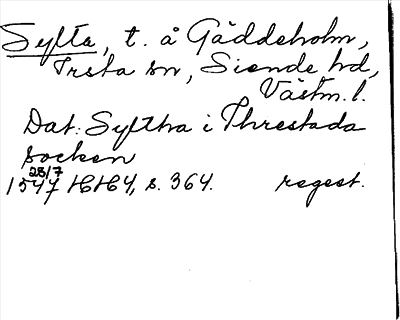 Sylta, t. å Gäddeholm,
Irsta sn, Siende hd,
Västm. l.
Dat: Syltha i Threstada
socken
28/7
1547 HH4, s. 364. regest.